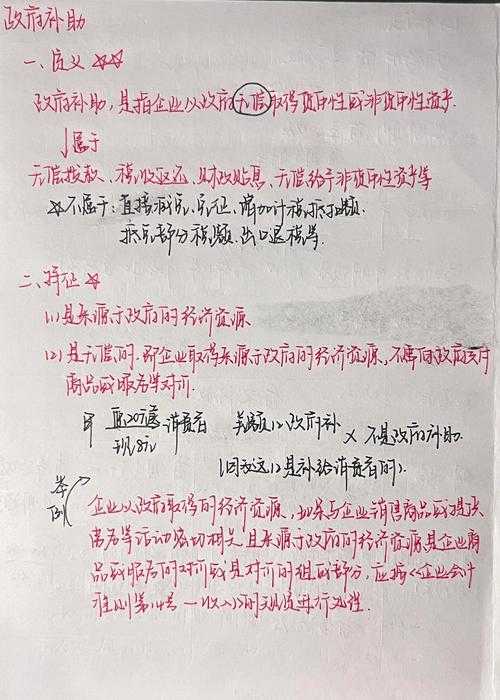 政府补助
一、定义 ☆☆
政府补助，是指企业从政府无偿取得货币性或非货币性资产.
↓属于
无偿拨款、税收返还、财政贴息、无偿给予非货币性资产等
☆不属于：直接减免、免征、增加计税抵扣额.
抵免部分税额.出口退税等.
二、特征 ☆
(1)是来源于政府的经济资源
(2)是无偿的.即企业取得来源于政府的经济资源,不需向政府交付
商品或服务等对价.
原20万 消费者
现8万 12政府补 × 不是政府补助.
(因为这12是补给消费者的).
举例
企业从政府取得的经济资源,如果与企业销售商品或提供
劳务等活动密切相关,且来源于政府的经济资源是企业商
品或服务的对价或是对价的组成部分，应按《企业会计
准则第14号—收入》的规定进行处理.